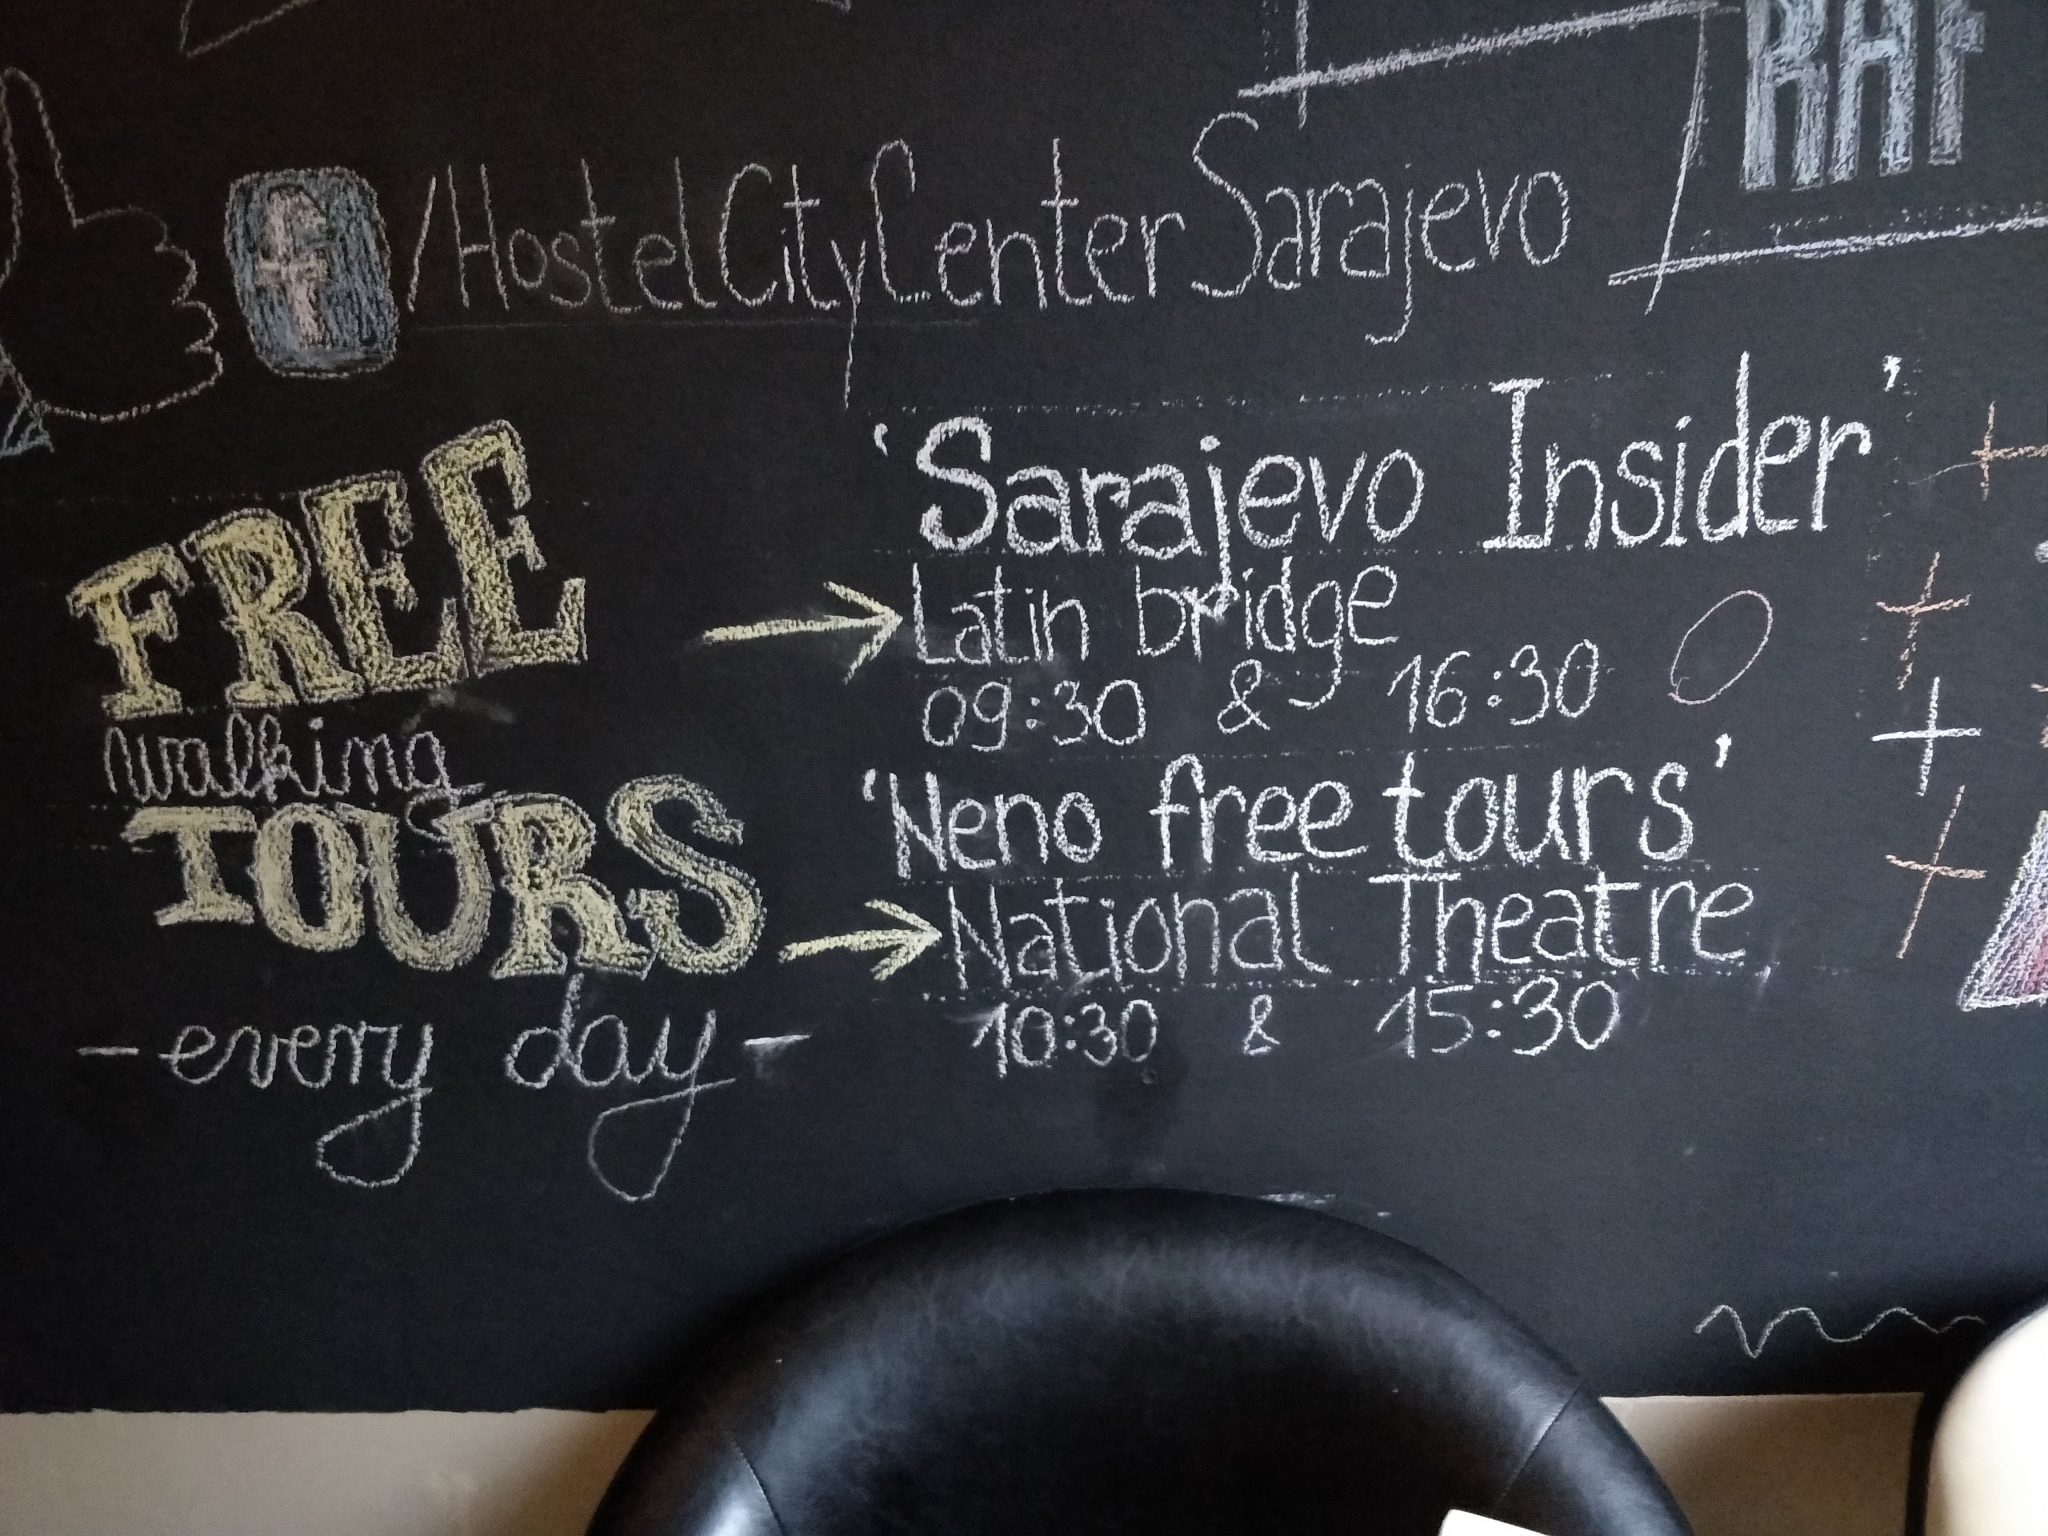 f /HostelCityCenterSarajevo
FREE
walking
TOURS
-every day-
'Sarajevo Insider'
Latin bridge
09:30 & 16:30
'Neno free tours'
National Theatre
10:30 & 15:30